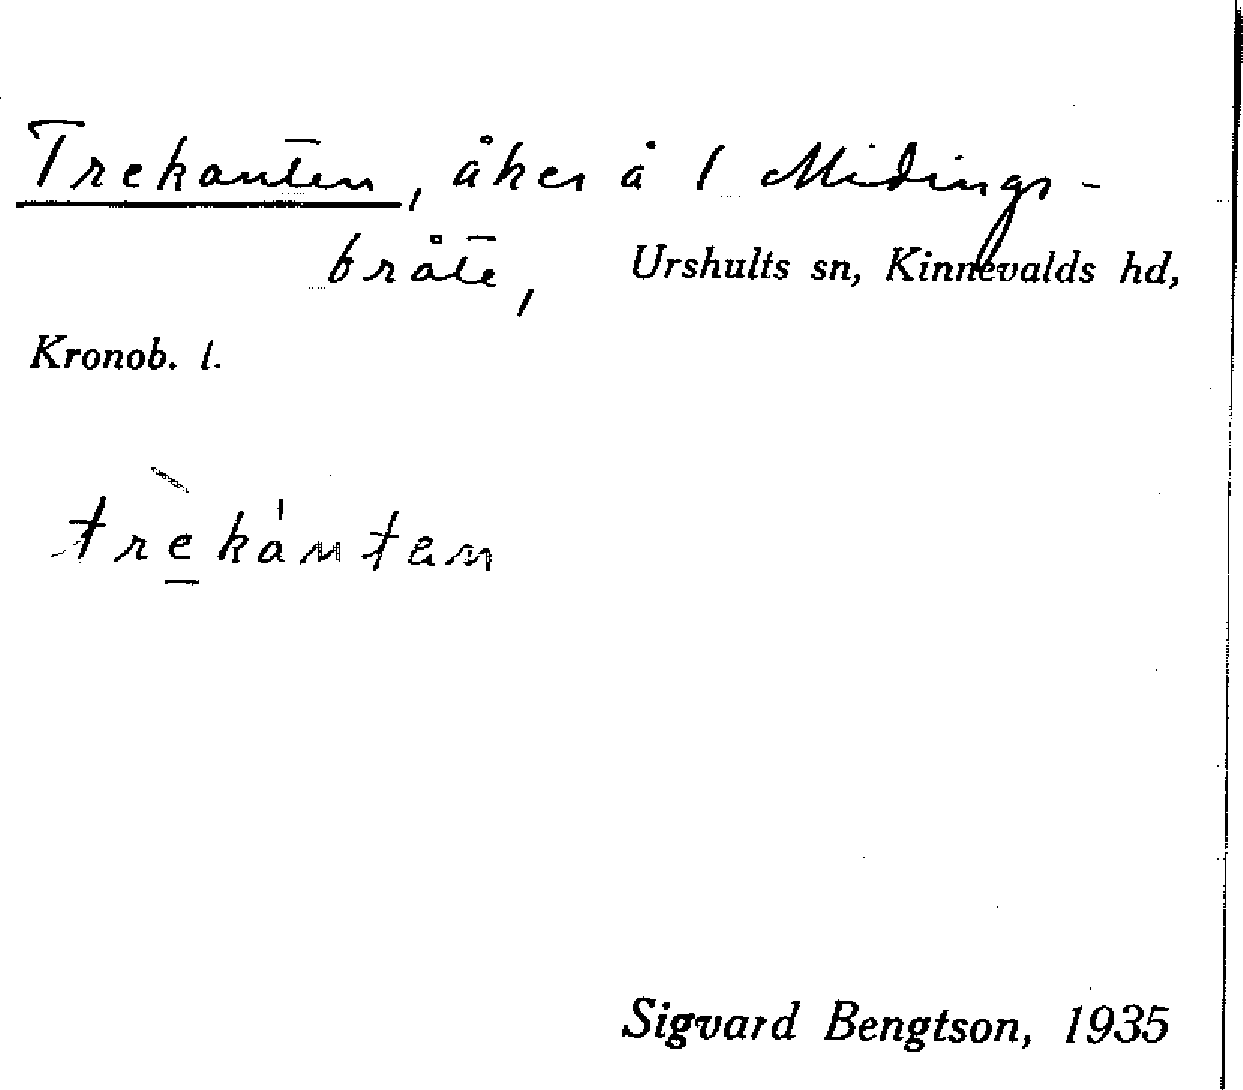 Trekanten, åker å 1 Midings-
bråte, Urshults sn, Kinnevalds hd,
Kronob. l.
trèkántan
Sigvard Bengtson, 1935